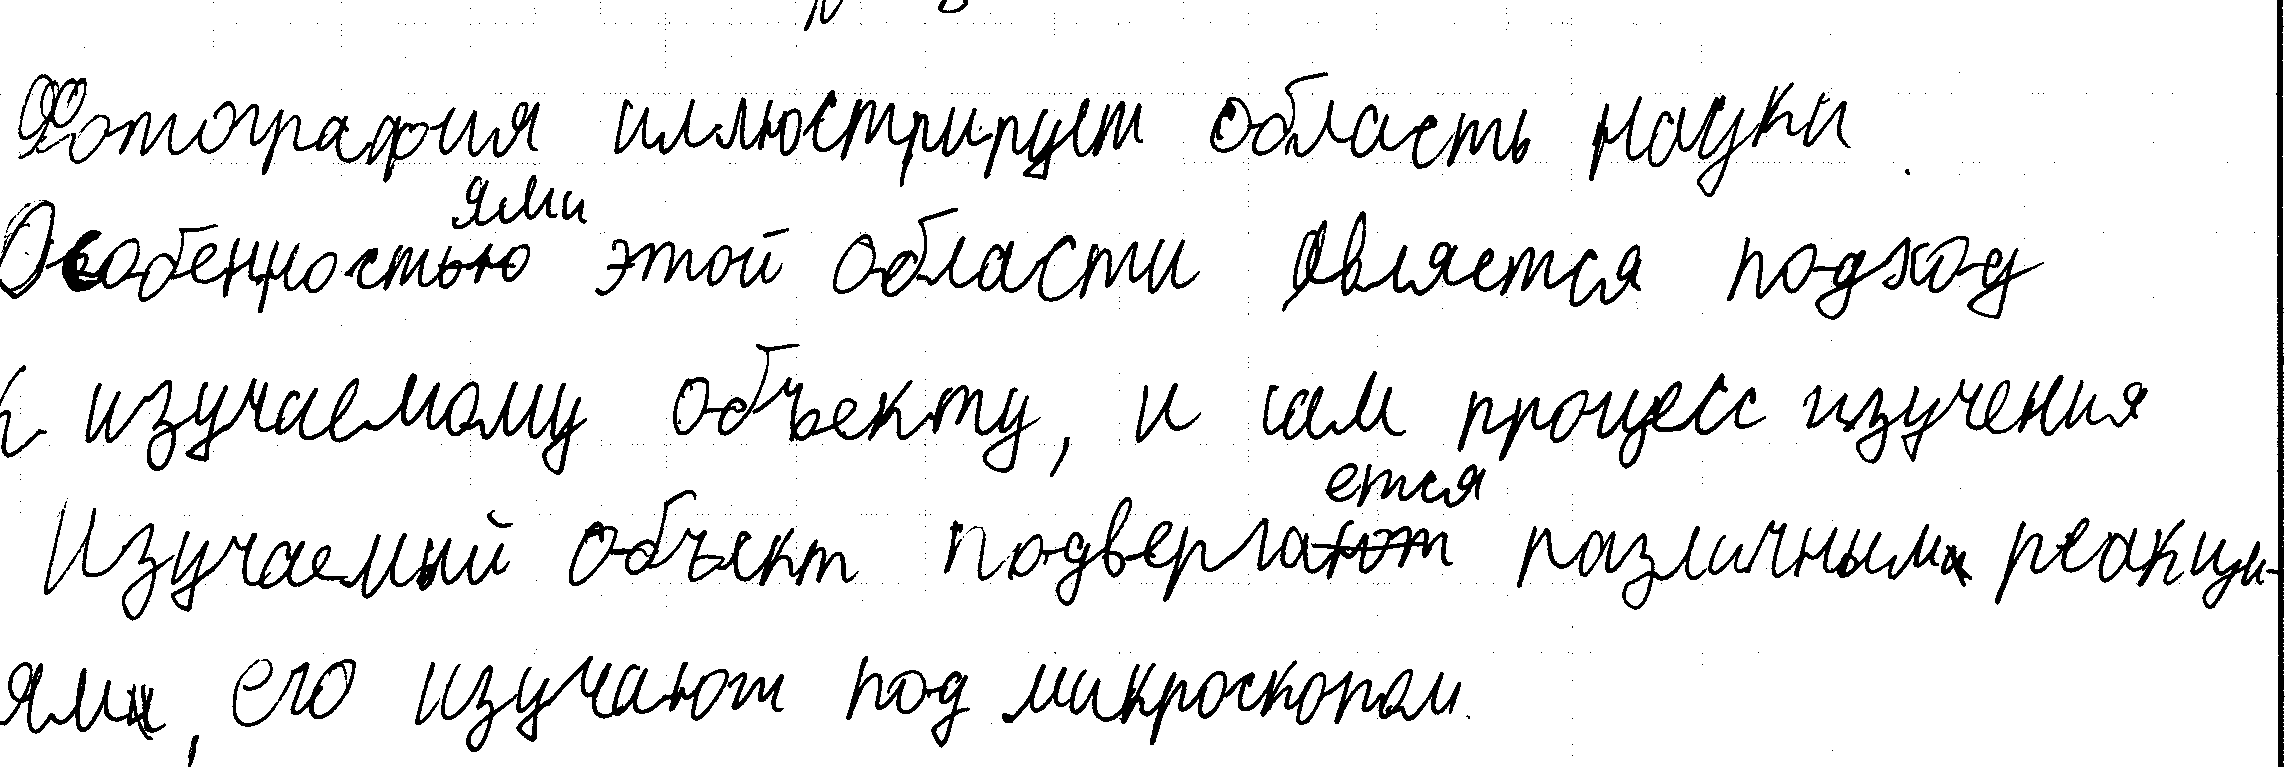 Фотография иллюстрирует область науки.
Особенностями этой области является подход
к изучаемому объекту, и сам процесс изучения
Изучаемый объект подвергается различным реакци-
ям, его изучают под микроскопом.